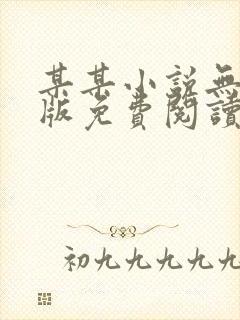 某某小说無
版免費閱讀
初九九九九九